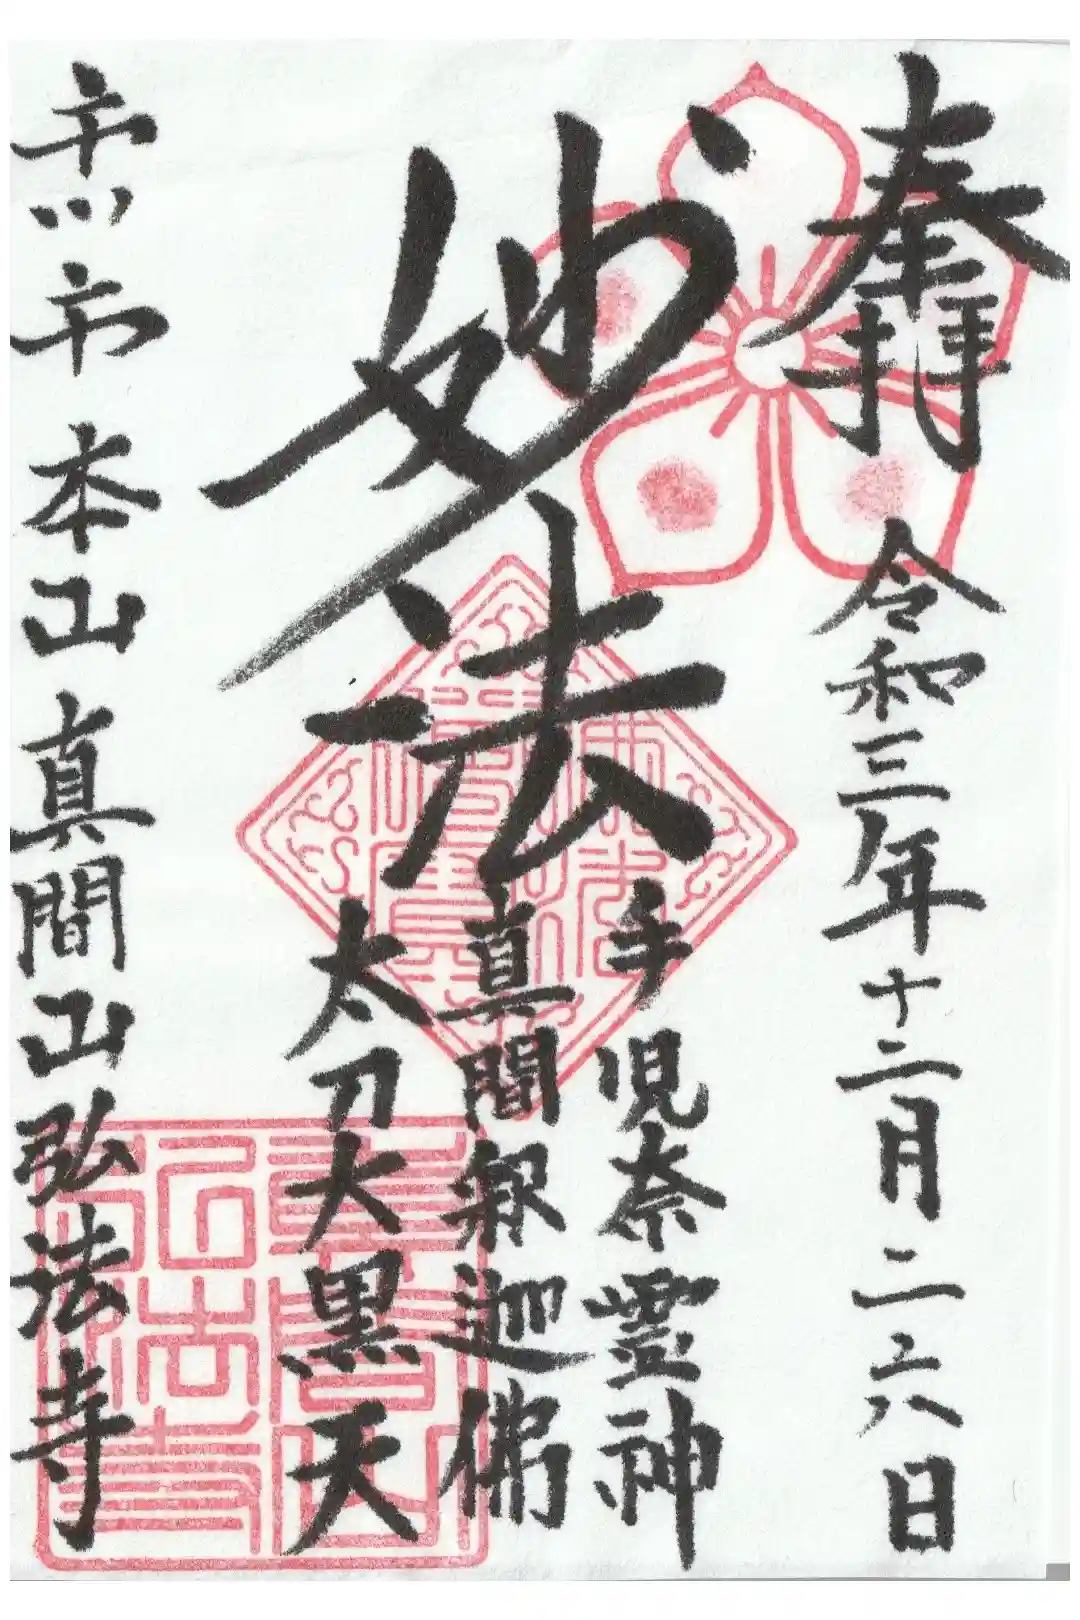 奉拝
令和三年十二月二六日
妙法
手児奈霊神
真間釈迦佛
太刀大黒天
市川市本山真間山弘法寺
佛法僧寶
真間山弘法寺